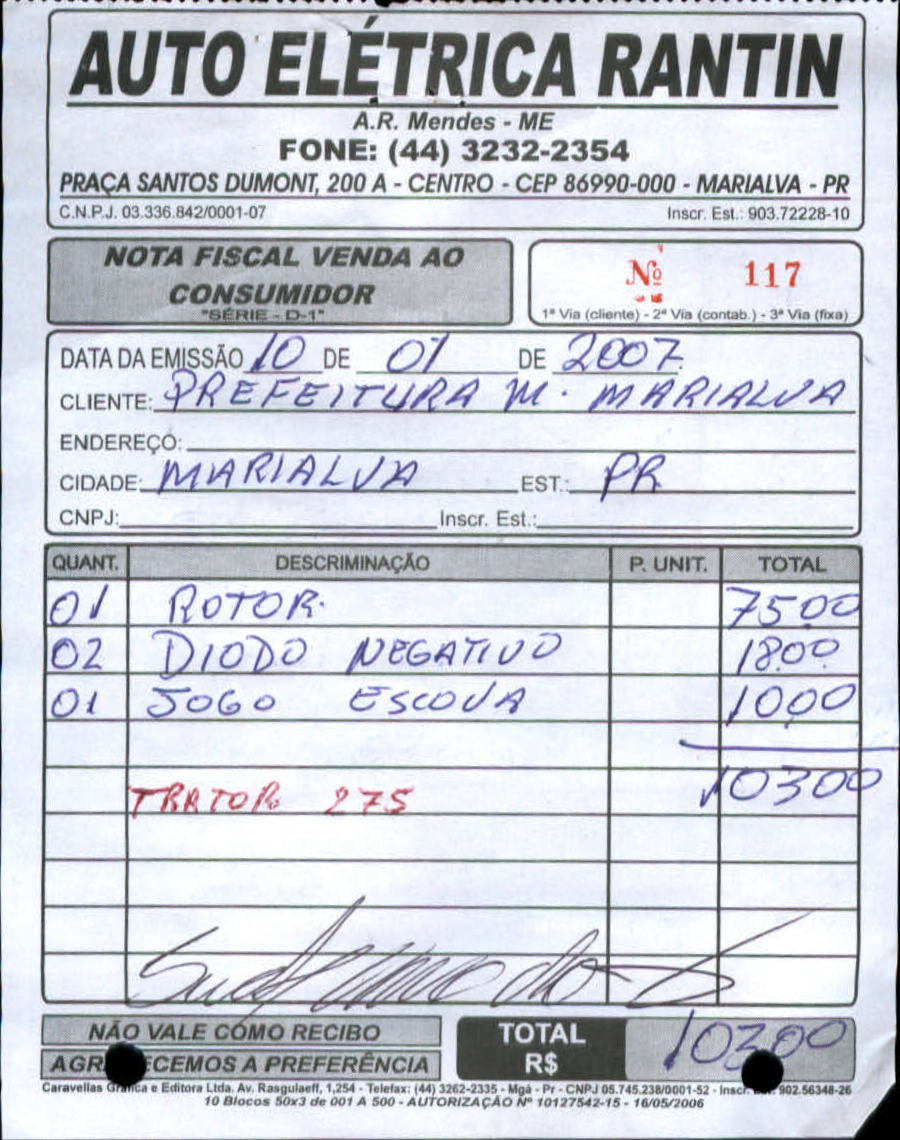 AUTO ELÉTRICA RANTIN
A.R. Mendes - ME
FONE: (44) 3232-2354
PRAÇA SANTOS DUMONT, 200 A - CENTRO - CEP 86990-000 - MARIALVA - PR
C.N.P.J. 03.336.842/0001-07 Inscr. Est.: 903.72228-10
NOTA FISCAL VENDA AO
CONSUMIDOR
"SÉRIE - D-1"
Nº 117
1ª Via (cliente) - 2ª Via (contab.) - 3ª Via (fixa)
DATA DA EMISSÃO 10 DE 01 DE 2007
CLIENTE: PREFEITURA M. MARIALVA
ENDEREÇO:
CIDADE: MARIALVA EST.: PR
CNPJ: Inscr. Est.:
QUANT. DESCRIMINAÇÃO P. UNIT. TOTAL
01 ROTOR. 75.00
02 DIODO NEGATIVO 18.00
01 JOGO ESCOVA 10.00
10300
TRATOR 275
NÃO VALE COMO RECIBO
AGRADECEMOS A PREFERÊNCIA
TOTAL
R$ 10300
Caravellas Gráfica e Editora Ltda. Av. Rasgulaeff, 1,254 - Telefax: (44) 3262-2335 - Mgá - Pr - CNPJ 05.745.238/0001-52 - Inscr. Est. 902.56348-26
10 Blocos 50x3 de 001 A 500 - AUTORIZAÇÃO Nº 10127542-15 - 16/05/2006